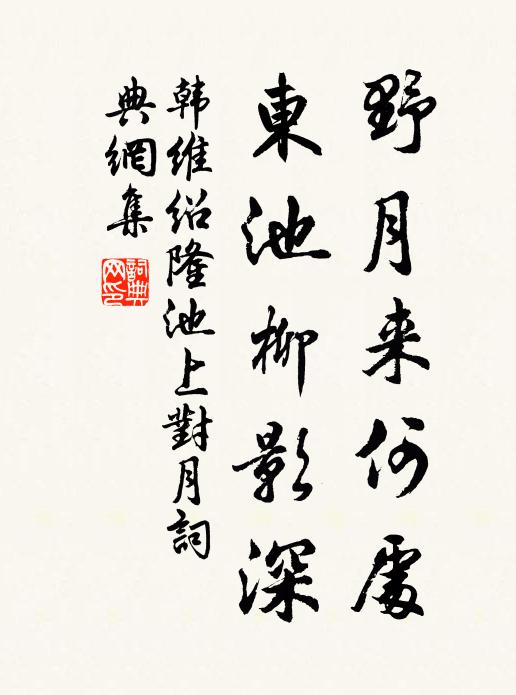 野月来何處
東池柳影深
韩維绍隆池上對月詞
典網集
詞典网印